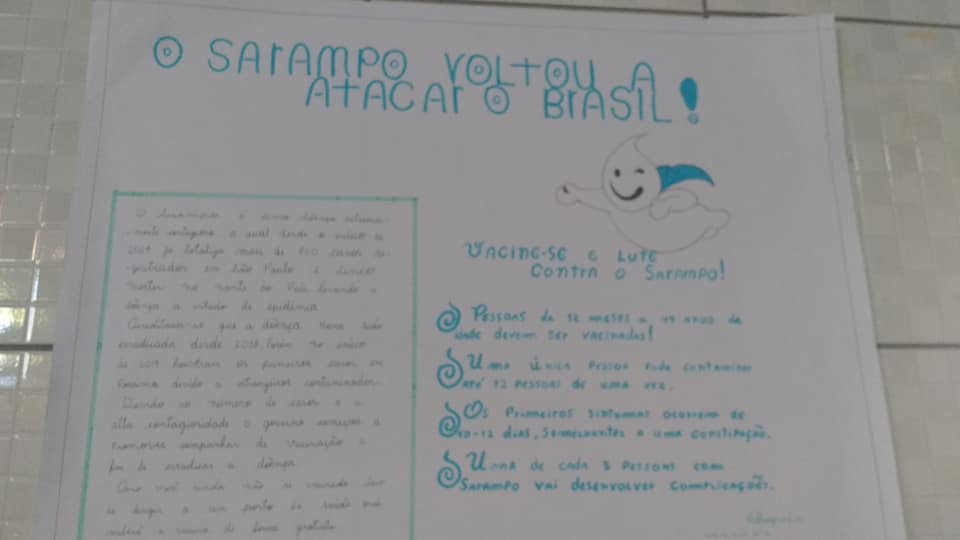 O SARAMPO VOLTOU A
ATACAR O BRASIL!
O sarampo é uma doença extrema-
mente contagiosa a qual desde o início de
2019 já totaliza mais de 600 casos re-
gistrados em São Paulo e
no norte do País levando a
doença a estado de epidemia.
que a doença havia sido
erradicada desde no início
de 2019 os primeiros casos em
Roraima devido a estrangeiros contaminados.
Devido ao número de casos e a
alta contagiosidade o governo começou a
promover campanhas de vacinação a
fim de erradicar a doença.
Caso você ainda não se vacinou
se dirigir a um posto de saúde
a vacina de forma gratuita.
VACINE-SE E LUTE
CONTRA O SARAMPO!
PESSOAS DE 12 MESES A 49 ANOS DE
IDADE DEVEM SER VACINADAS!
UMA ÚNICA PESSOA PODE CONTAMINAR
ATÉ 12 PESSOAS DE UMA VEZ.
OS PRIMEIROS SINTOMAS OCORREM DE
10-12 DIAS, SEMELHANTES A UMA CONSTIPAÇÃO.
UMA DE CADA 3 PESSOAS COM
SARAMPO VAI DESENVOLVER COMPLICAÇÕES.